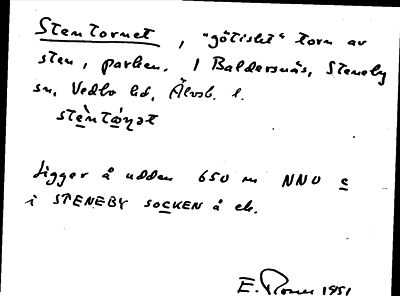 Stentornet, "götiskt" torn av
sten, parken. I Baldersnäs, Steneby
sn, Vedbo hd, Älvsb. l.
Ligger å udden 650 m NNO c
i STENEBY SOCKEN å ek.
E. 1951